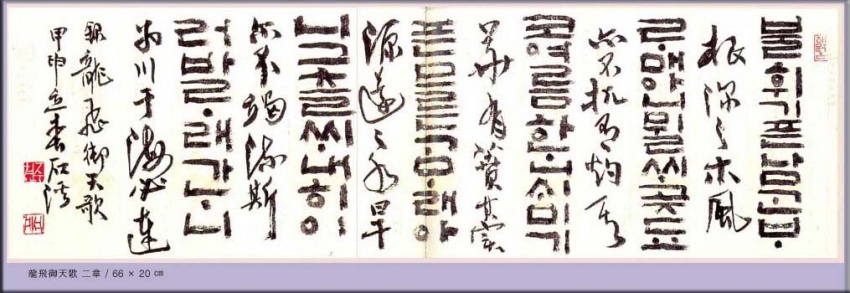 불휘기픈남ᄀᆞᆫᄇᆞ
根深之木風
ᄅᆞ매아니뮐ᄊᆡ곶됴
亦不扤有灼其
코여름하ᄂᆞ니ᄉᆡ미기
華有蕡其實
픈므른ᄀᆞᄆᆞ래아
源遠之水旱
니그츨ᄊᆡ내히이
亦不竭流斯
러바ᄅᆞ래가ᄂᆞ니
爲川于海必達
錄龍飛御天歌
甲申立春石
龍飛御天歌 二章 / 66 × 20 ㎝